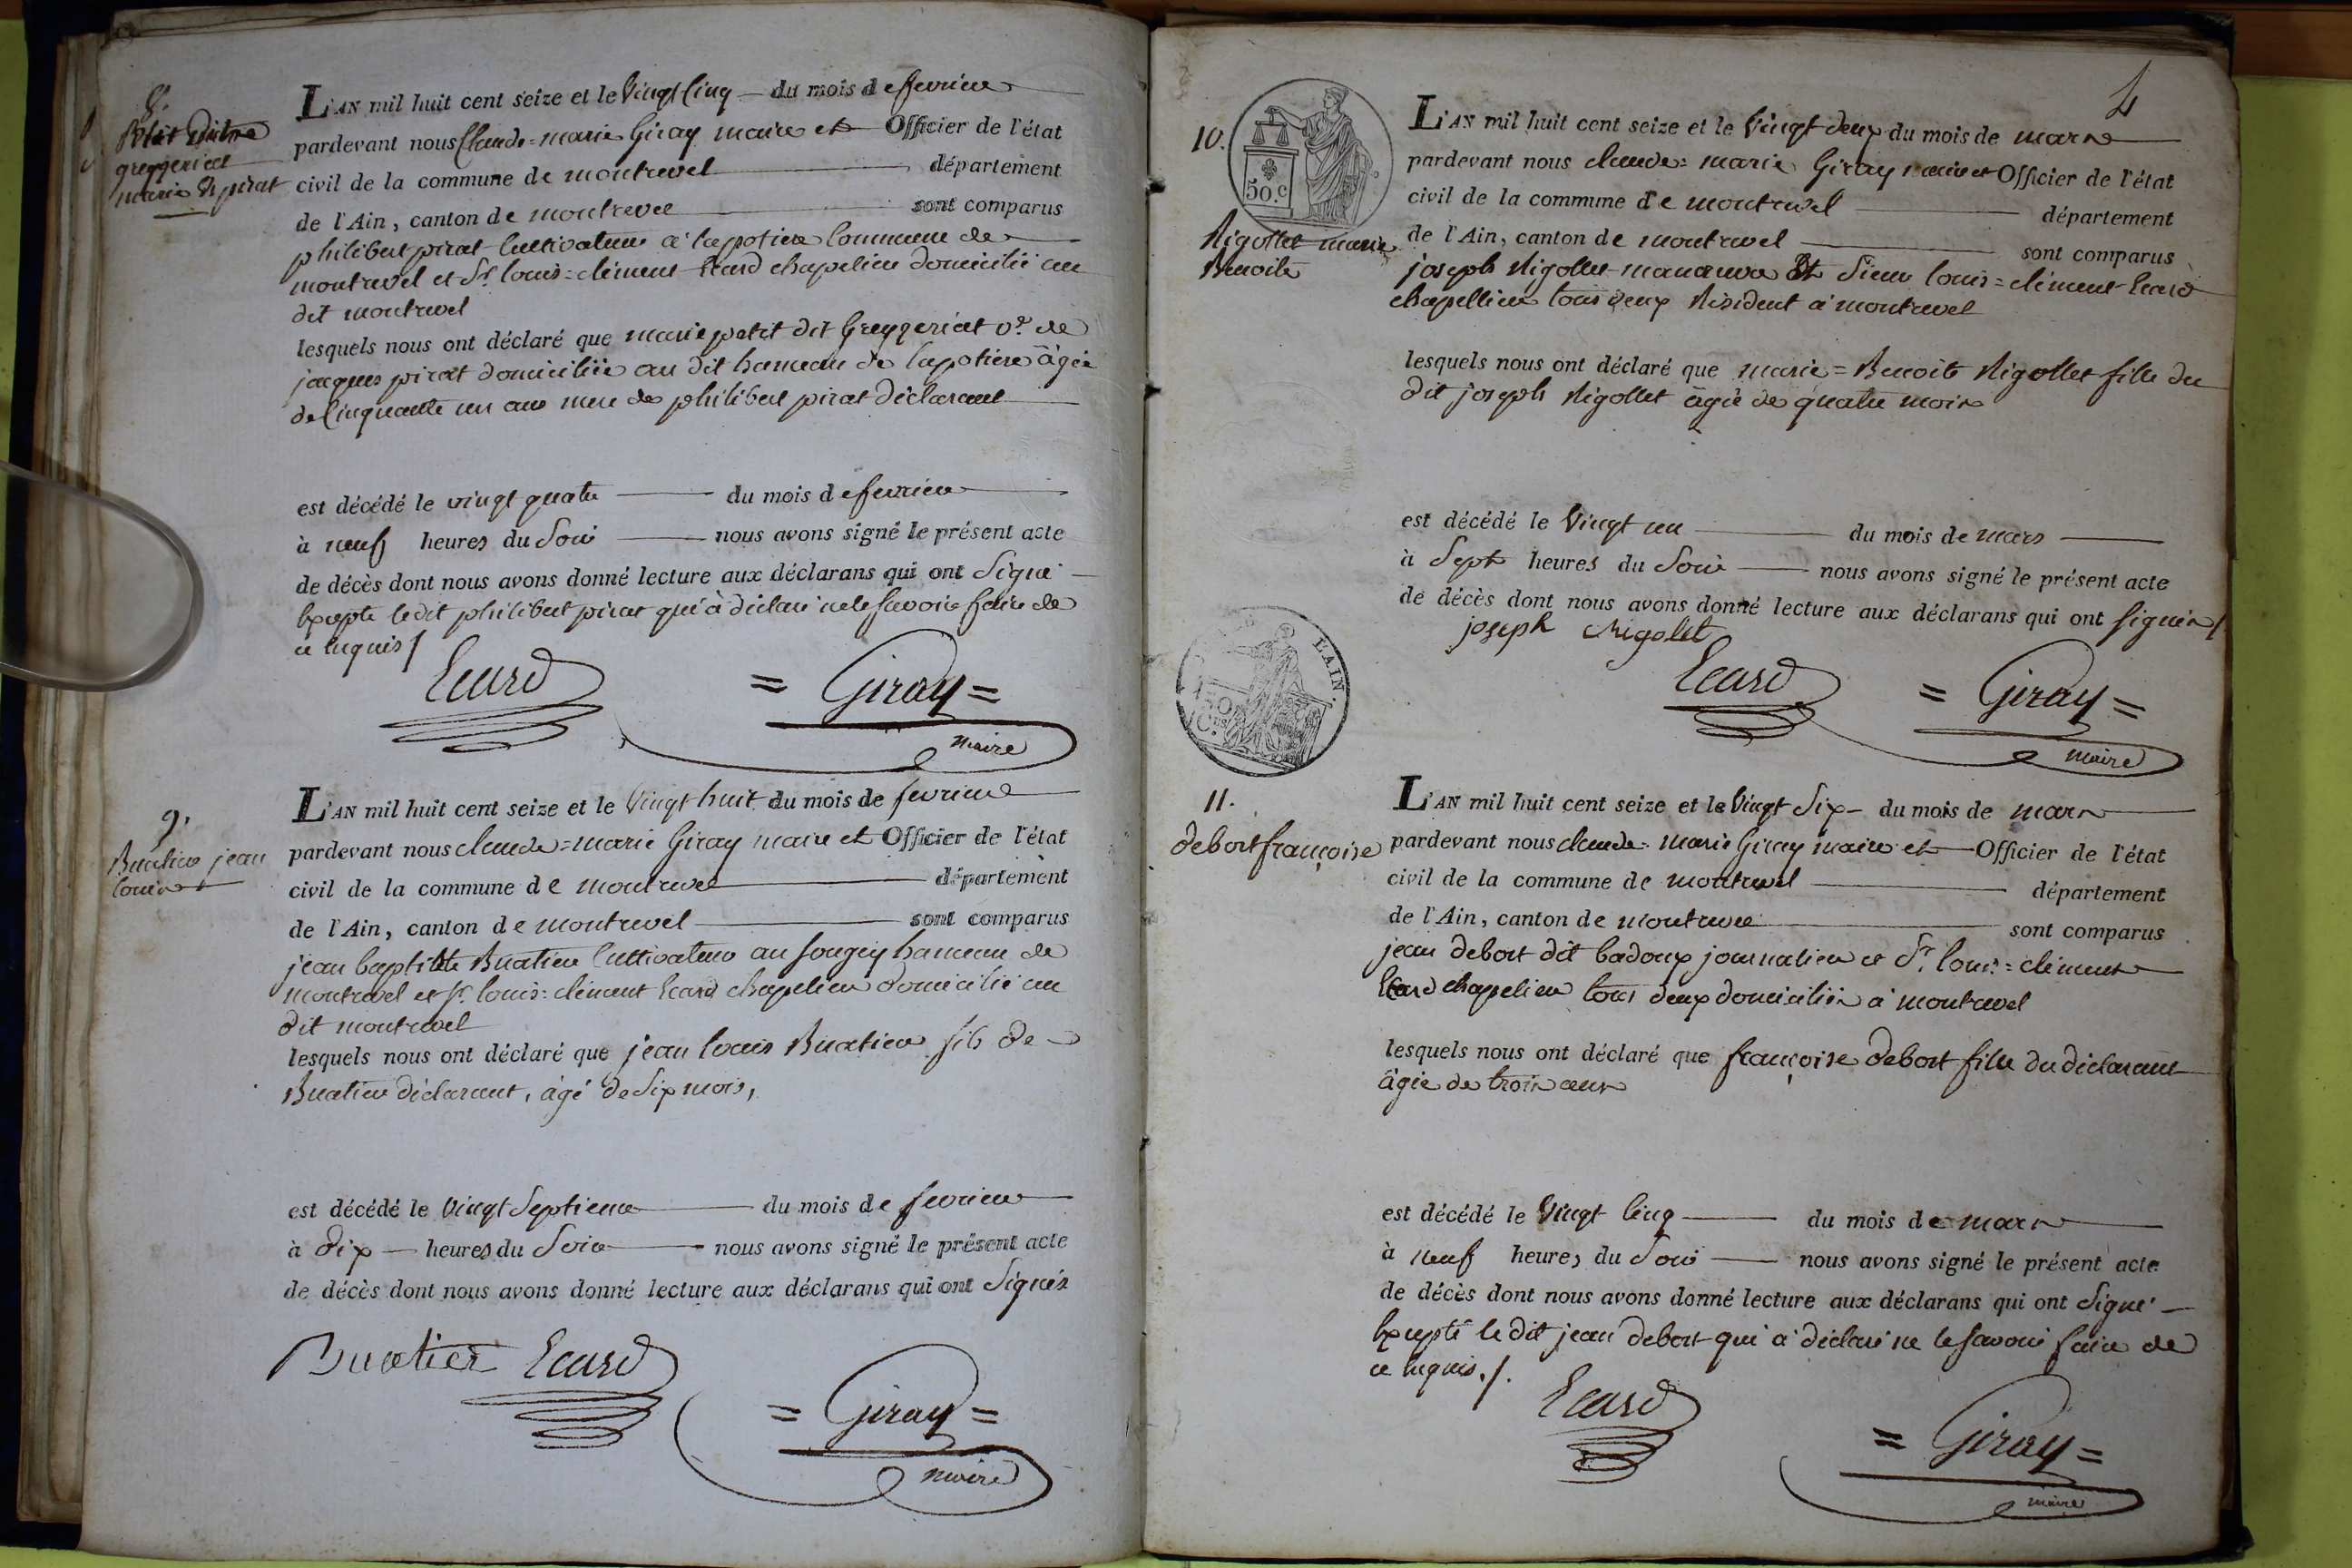 8.
petit dit
greyzeriat
marie Ve pirat
L'AN mil huit cent seize et le Vingt Cinq du mois de fevrier
pardevant nous Claude=marie Giray maire et Officier de l'état
civil de la commune de montrevel département
de l'Ain, canton de montrevel sont comparus
philibert pirat Cultivateur a la potiere Commune de
montrevel et Sr. louis=clément Ecard chapelier domicilié au
dit montrevel
lesquels nous ont déclaré que marie petit dit Greyzeriat ve. de
jacques pirat domiciliée au dit hameau de lapotiere âgée
de Cinquante un ans mere de philibert pirat déclarant
est décédé le vingt quatre du mois de fevrier
à neuf heures du Soir nous avons signé le présent acte
de décès dont nous avons donné lecture aux déclarans qui ont Signé
Excepté ledit philibert pirat qui à déclaré ne le Savoir faire de
ce Requis /
Ecard = Giray =
maire
9.
Buatier jean
louis
L'AN mil huit cent seize et le Vingt huit du mois de fevrier
pardevant nous claude=marie Giray maire et Officier de l'état
civil de la commune de montrevel département
de l'Ain, canton de montrevel sont comparus
jean baptiste Buatier Cultivateur au Sougey hameau de
montrevel et Sr. louis=clément Ecard chapelier domicilié au
dit montrevel
lesquels nous ont déclaré que jean louis Buatier fils de
Buatier déclarant, âgé de Six mois,
est décédé le Vingt Septieme du mois de fevrier
à dix heures du Soir nous avons signé le présent acte
de décès dont nous avons donné lecture aux déclarans qui ont Signés
Buatier Ecard
= Giray =
maire
4
10.
50.c
Rigollet marie
Benoite
L'AN mil huit cent seize et le Vingt deux du mois de mars
pardevant nous claude=marie Giray maire et Officier de l'état
civil de la commune de montrevel département
de l'Ain, canton de montrevel sont comparus
joseph Rigollet manœuvre Et Sieur louis=clément Ecard
chapellier tous deux Résident a montrevel
lesquels nous ont déclaré que marie=Benoite Rigollet fille du
dit joseph Rigollet âgée de quatre mois
est décédé le Vingt un du mois de mars
à Sept heures du Soir nous avons signé le présent acte
de décès dont nous avons donné lecture aux déclarans qui ont Signés /
joseph Rigolet
Ecard = Giray =
maire
L'AIN
50
Ces
11.
debost françoise
L'AN mil huit cent seize et le Vingt Six du mois de mars
pardevant nous claude=marie Giray maire et Officier de l'état
civil de la commune de montrevel département
de l'Ain, canton de montrevel sont comparus
jean debost dit badoux journalier et Sr. louis=clément
Ecard chapelier tous deux domiciliés a montrevel
lesquels nous ont déclaré que françoise debost fille du déclarant
âgée de trois ans
est décédé le Vingt Cinq du mois de mars
à neuf heures du Soir nous avons signé le présent acte
de décès dont nous avons donné lecture aux déclarans qui ont Signé
Excepté le dit jean debost qui a déclaré ne le Savoir faire de
ce Requis. /.
Ecard
= Giray =
maire